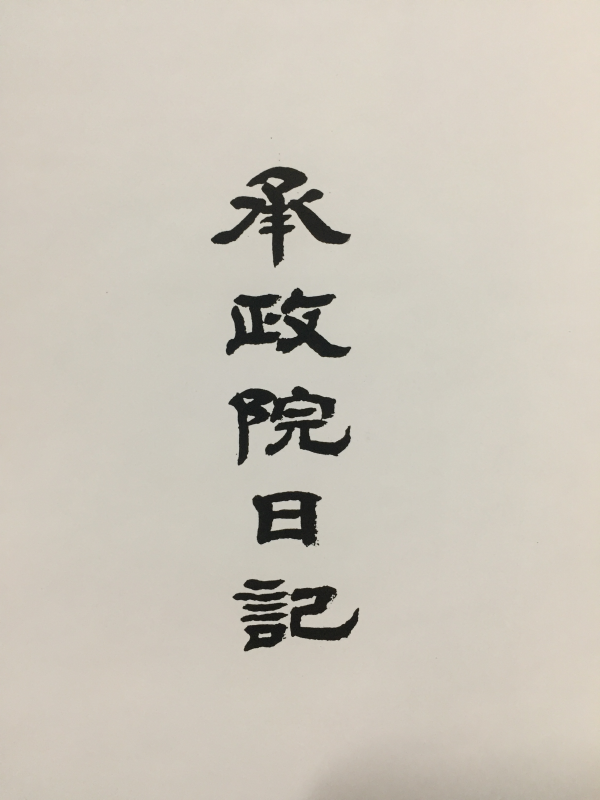 承政院日記